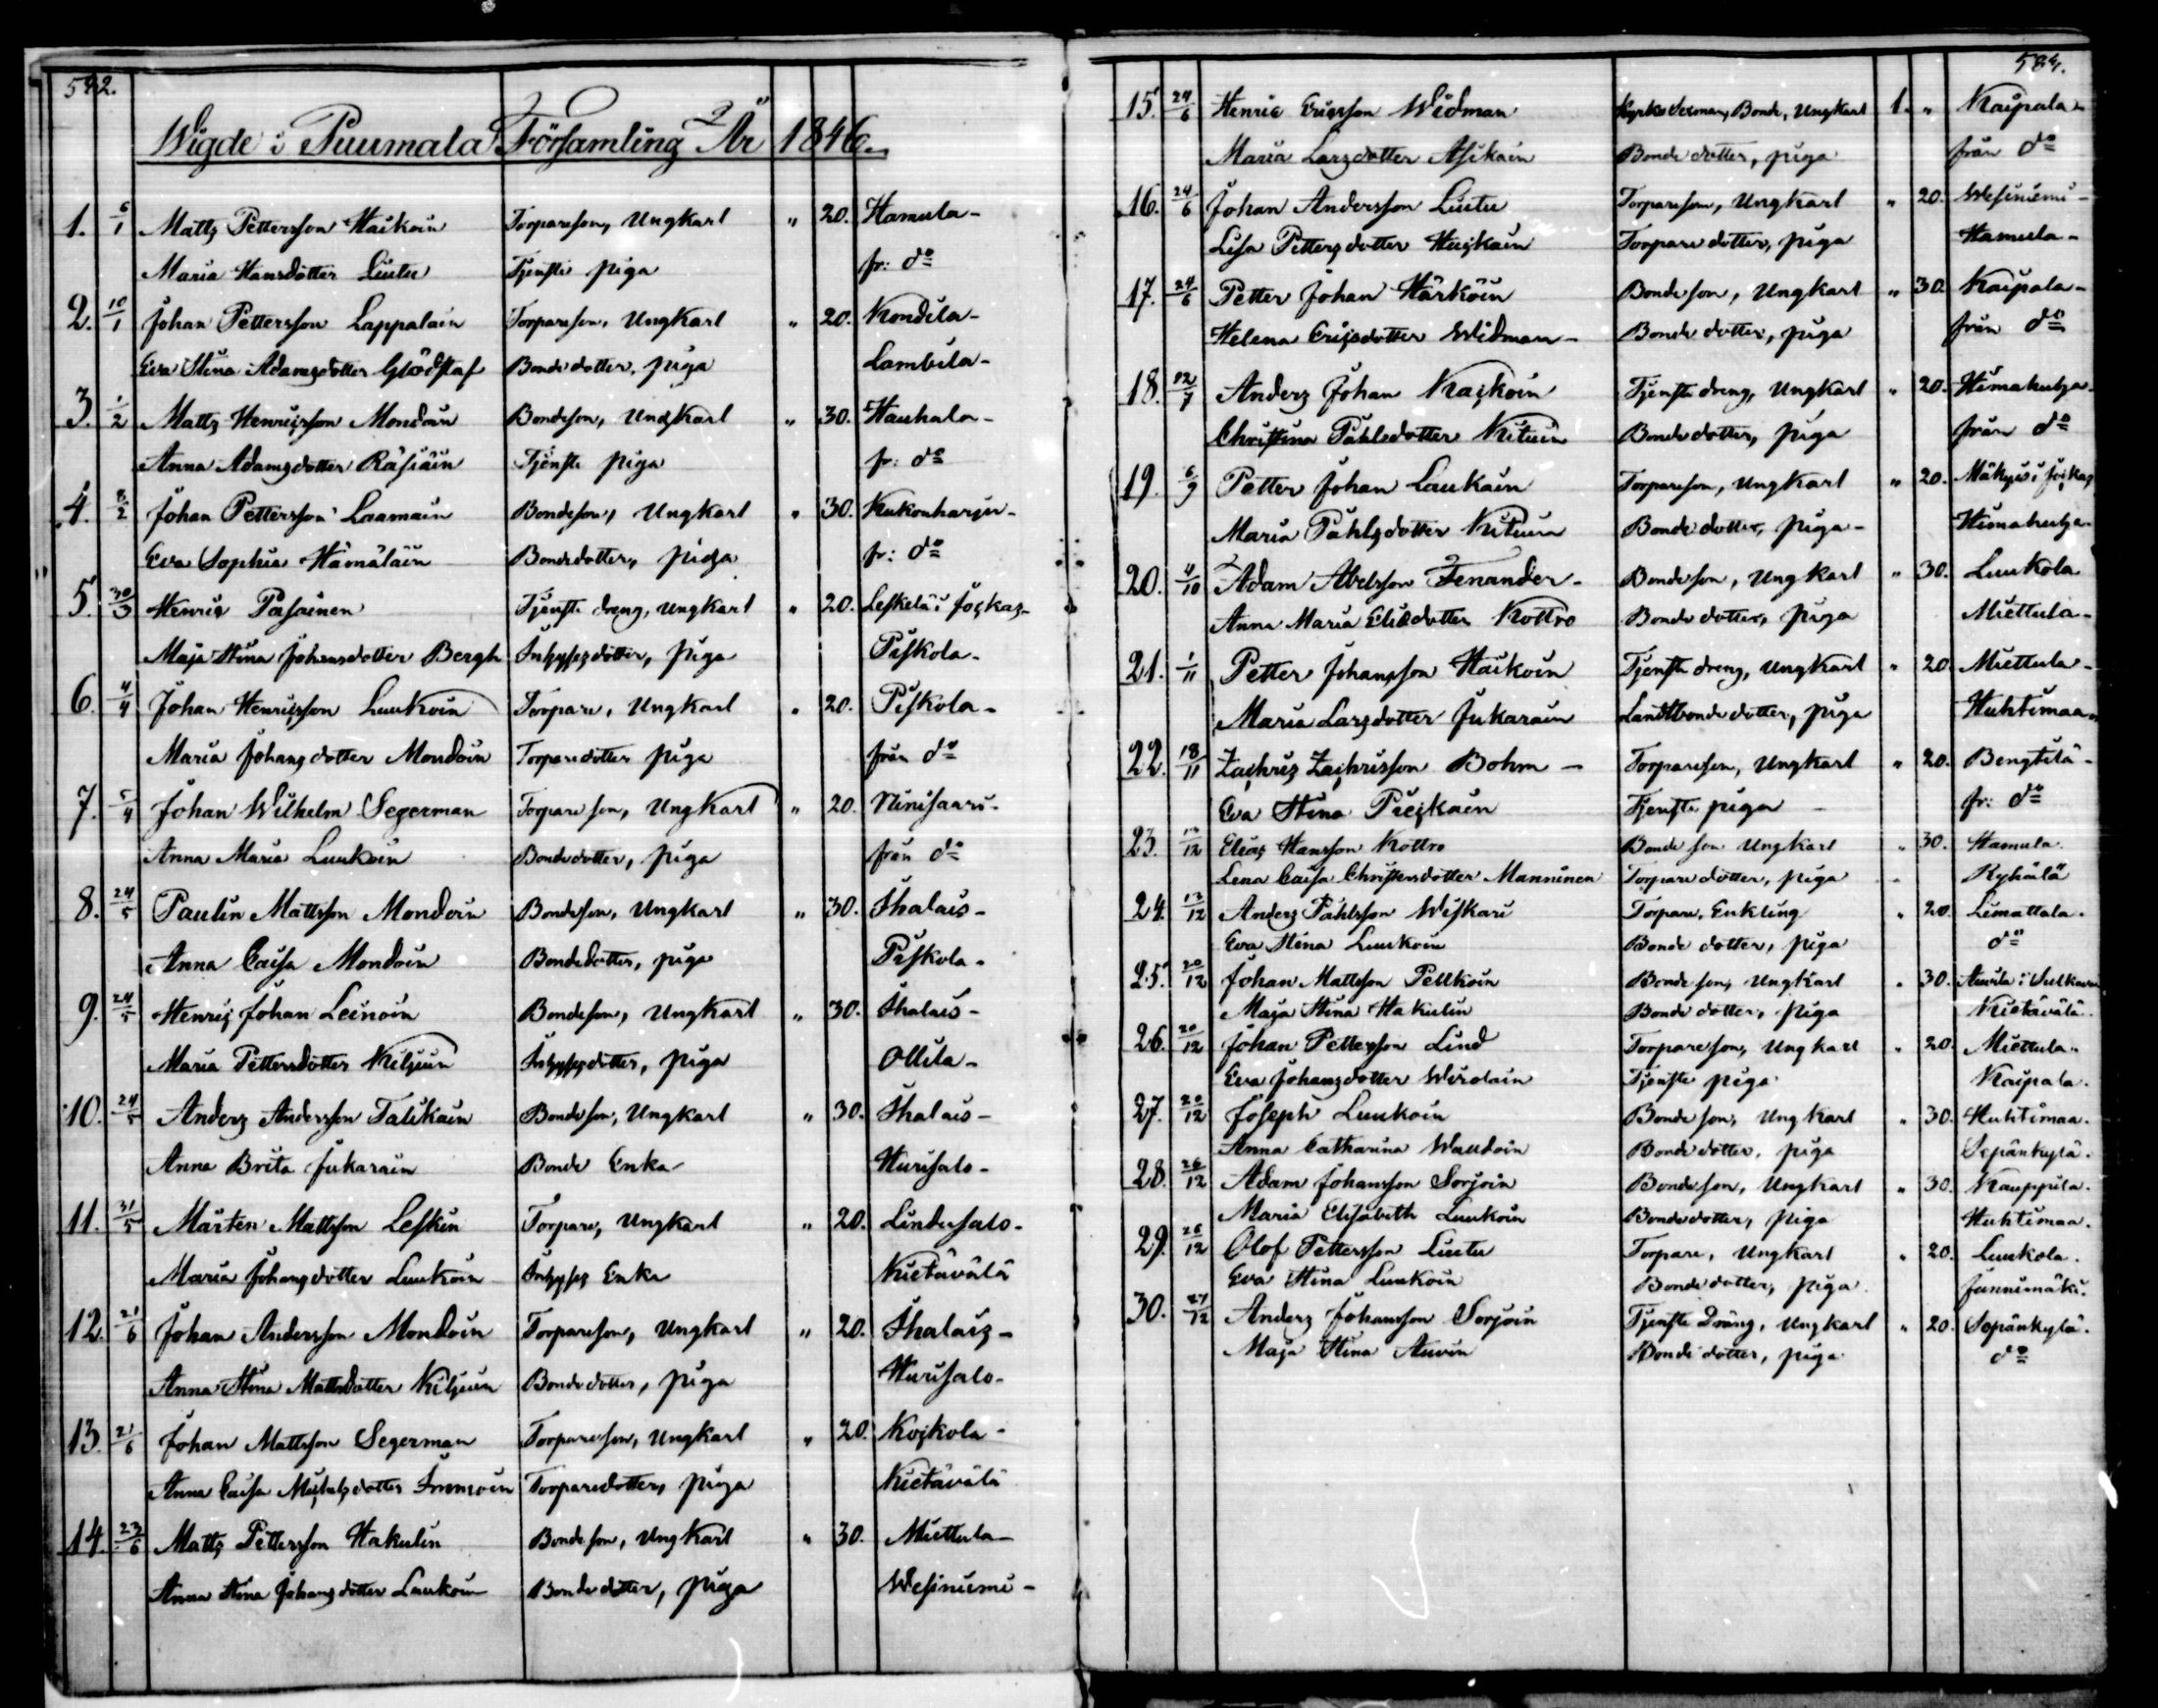 592.
Wigde i Puumala Församling År 1846.
1. 6/1 Matts Pettersson Haikoin Torpareson, Ungkarl " 20. Hamula-
Maria Hansdotter Liutu Tjenste piga fr: do
2. 10/1 Johan Pettersson Lappalain Torpareson, Ungkarl " 20. Kondila-
Eva Stina Adamsdotter Glödstaf Bondedotter, piga Lambila-
3. 1/2 Matts Henricsson Mondoin Bondeson, Ungkarl " 30. Hauhala-
Anna Adamsdotter Räsiäin Tjenste piga fr: do
4. 8/2 Johan Pettersson Laamain Bondeson, Ungkarl " 30. Kukonharju-
Eva Sophia Hämäläin Bondedotter, piga fr: do
5. 30/3 Henric Pasainen Tjenste dreng, Ungkarl " 20. Leskelä i Jockas-
Maja Stina Johansdotter Bergh Inhysesdotter, piga Piskola-
6. 4/4 Johan Henricsson Luukoin Torpare, Ungkarl " 20. Piskola-
Maria Johansdotter Mondoin Torparedotter piga från do
7. 5/4 Johan Wilhelm Segerman Torpareson, Ungkarl " 20. Niinisaari-
Anna Maria Luukoin Bondedotter, piga från do
8. 24/5 Paulin Mattsson Mondoin Bondeson, Ungkarl " 30. Ihalais-
Anna Caisa Mondoin Bondedotter, piga Piskola-
9. 24/5 Henric Johan Leinoin Bondeson, Ungkarl " 30. Ihalais-
Maria Pettersdotter Kiljuin Inhysesdotter, piga Ollila-
10. 24/5 Anders Andersson Talikain Bondeson, Ungkarl " 30. Ihalais-
Anna Brita Jukarain Bonde Enka Hurisalo-
11. 31/5 Mårten Mattsson Leskin Torpare, Ungkarl " 20. Lindusalo-
Maria Johansdotter Luukoin Inhyses Enka Kietävälä
12. 21/6 Johan Andersson Mondoin Torpareson, Ungkarl " 20. Ihalais-
Anna Stina Mattsdotter Kiljuin Bondedotter, piga Hurisalo-
13. 21/6 Johan Mattsson Segerman Torpareson, Ungkarl " 20. Koskola-
Anna Caisa Michelsdotter Immoin Torparedotter, piga Kietävälä
14. 23/6 Matts Pettersson Hakulin Bondeson, Ungkarl " 30. Miettula-
Anna Stina Johansdotter Luukoin Bondedotter, piga Wesiniemi-
15. 24/6 Henric Ericsson Widman Bonde, Ungkarl 1. " Kaipala-
Maria Larsdotter Asikain Bondedotter, piga från do
16. 24/6 Johan Andersson Liutu Torpareson, Ungkarl " 20. Wesiniemi-
Lisa Pettersdotter Huiskain Torparedotter, piga Hamula-
17. 24/6 Petter Johan Härköin Bondeson, Ungkarl " 30. Kaipala-
Helena Ericsdotter Widman- Bondedotter, piga från do
18. 12/7 Anders Johan Kaskoin Tjenste dreng, Ungkarl " 20. Himahutga-
Christina Påhlsdotter Kituin Bondedotter, piga från do
19. 6/9 Petter Johan Laukain Torpareson, Ungkarl " 20. i Jockas
Maria Påhlsdotter Kituin Bondedotter, piga- Himahutga-
20. 4/10 Adam Abelsson Fenander- Bondeson, Ungkarl " 30. Luukola
Anna Maria Eliedotter Kottro Bondedotter, piga Miettula-
21. 1/11 Petter Johansson Haikoin Tjenste dreng, Ungkarl " 20. Miettula-
Maria Larsdotter Jukarain Landtbondedotter, piga Huhtimaa-
22. 18/11 Zachris Zachrisson Bohm- Torpareson, Ungkarl " 20. Bengtilä-
Eva Stina Piiskain Tjenste piga- fr: do
23. 13/12 Elias Hansson Kottro Bondeson Ungkarl " 30. Hamula.
Lena Caisa Christersdotter Manninen Torparedotter, piga Ryhälä
24. 13/12 Anders Påhlsson Wiskari Torpare, Enkling " 20. Limattala.
Eva Stina Luukoin Bondedotter, piga do
25. 20/12 Johan Mattsson Pellkoin Bondeson, Ungkarl " 30. Auvila i
Maja Stina Hakulin Bondedotter, piga Kietävälä.
26. 20/12 Johan Pettersson Lind Torpareson, Ungkarl " 20. Miettula.
Eva Johansdotter Wirolain Tjenste piga Kaipala.
27. 20/12 Joseph Luukoin Bondeson, Ungkarl " 30. Huhtimaa.
Anna Catharina Waudoin Bondedotter, piga Sepänkylä.
28. 26/12 Adam Johansson Sorjoin Bondeson, Ungkarl " 30. Kauppila.
Maria Elisabeth Luukoin Bondedotter, piga Huhtimaa.
29. 26/12 Olof Pettersson Liutu Torpare, Ungkarl " 20. Luukola.
Eva Stina Luukoin Bondedotter, piga Junnimäki.
30. 27/12 Anders Johansson Sorjoin Tjenste Dräng, Ungkarl " 20. Sepänkylä.
Maja Stina Auvin Bondedotter, piga do